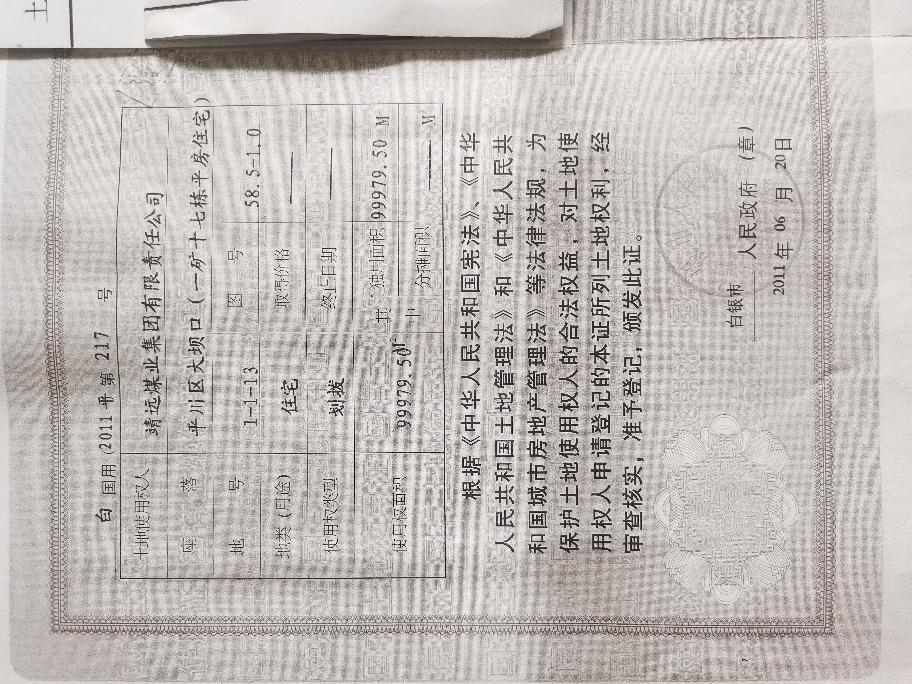 土
白 国用(2011 第 217 号
土地使用权人 靖远煤业集团有限责任公司
座 落 平川区大坝口(一矿十七栋平房住宅)
地 号 1-1-13 图 号 58.5-1.0
地类(用途) 住宅 取得价格 ——
使用权类型 划拨 终止日期 ——
使用权面积 99979.50M² 其中 独用面积 99979.50 M
分摊面积 —— M²
根据《中华人民共和国宪法》、《中华
人民共和国土地管理法》和《中华人民共
和国城市房地产管理法》等法律法规,为
保护土地使用权人的合法权益,对土地使
用权人申请登记的本证所列土地权利,经
审查核实,准予登记,颁发此证。
白银市 人民政府 (章)
2011 年 06 月 20 日